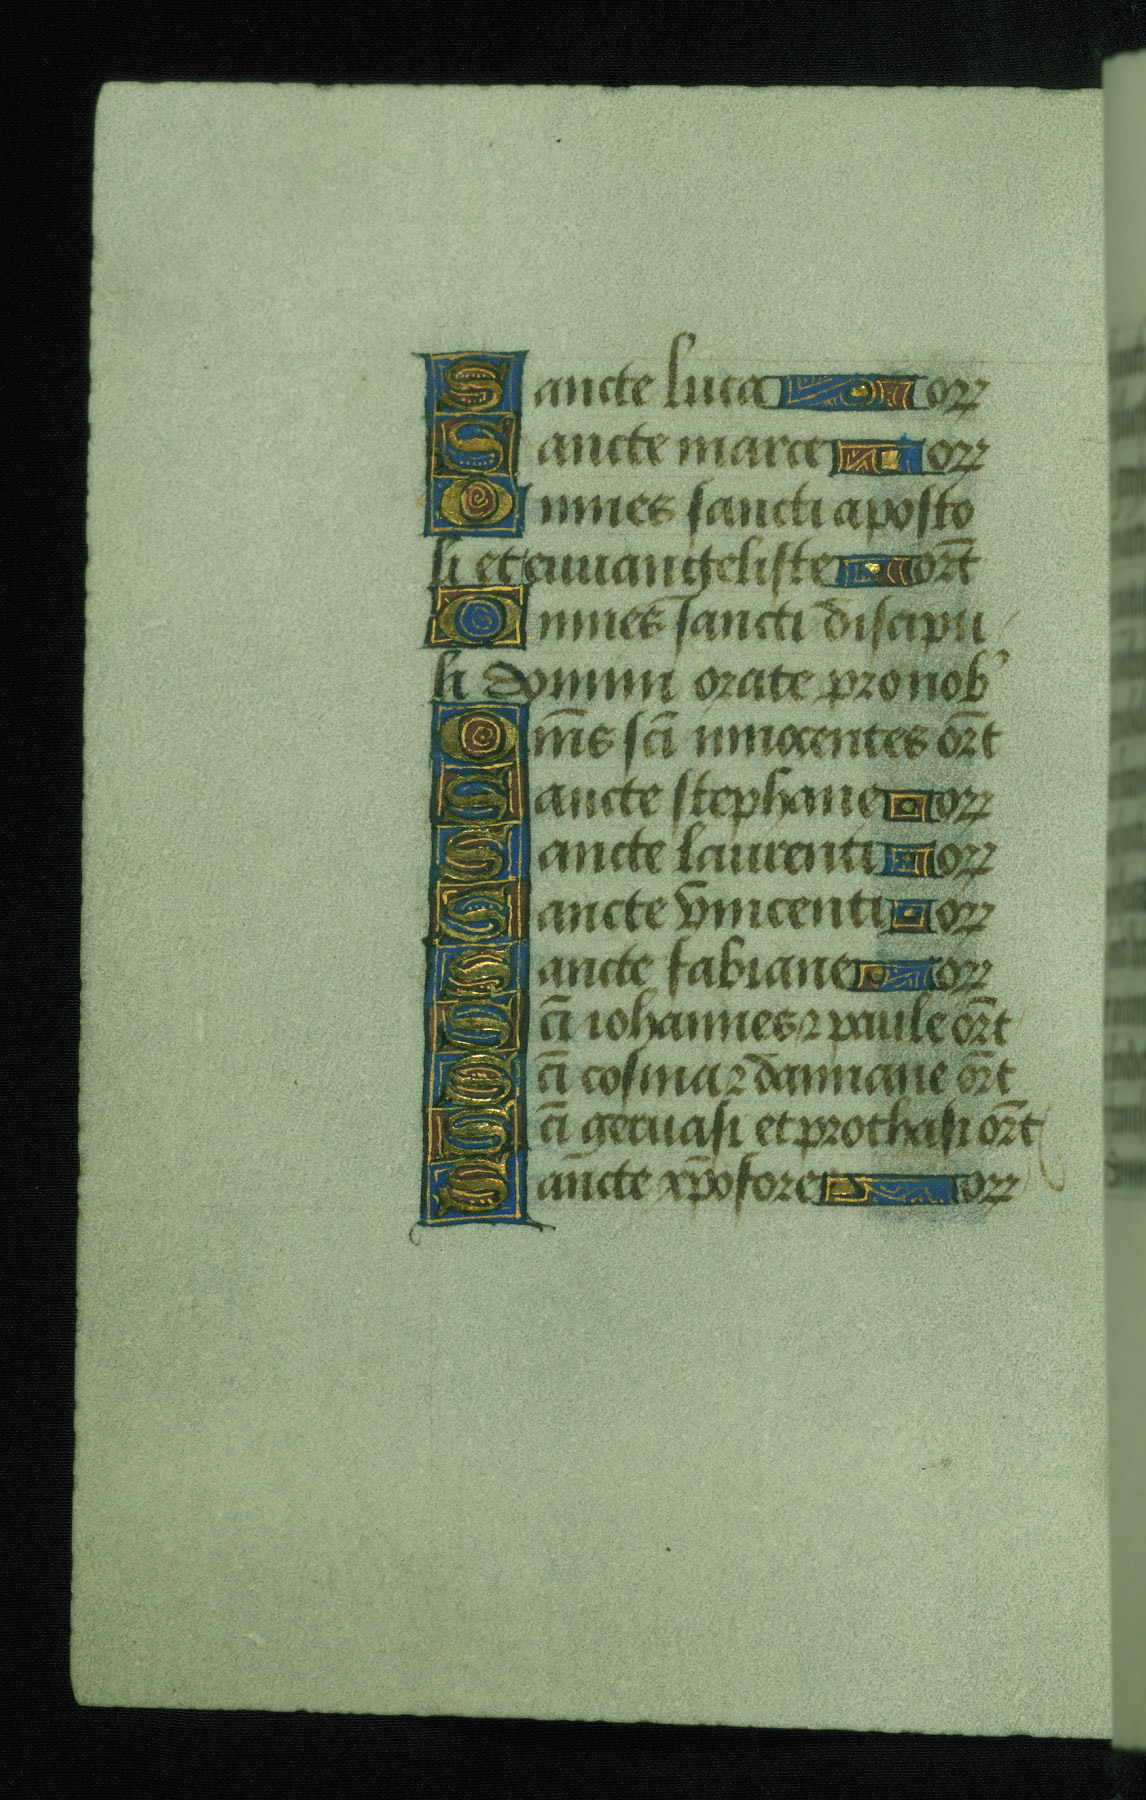 Sancte luca orꝝ
Sancte marce orꝝ
Omnes sancti aposto
li et euuangeliste or̄t
Omnes sancti discipu
li domini orate pro nob'
Om̄s sc̄i innocentes or̄t
Sancte stephane orꝝ
Sancte laurenti orꝝ
Sancte vincenti orꝝ
Sancte fabiane orꝝ
Sc̄i iohannes ⁊ paule or̄t
Sc̄i cosma ⁊ damiane or̄t
Sc̄i geruasi et prothasi or̄t
Sancte xp̄ofore orꝝ